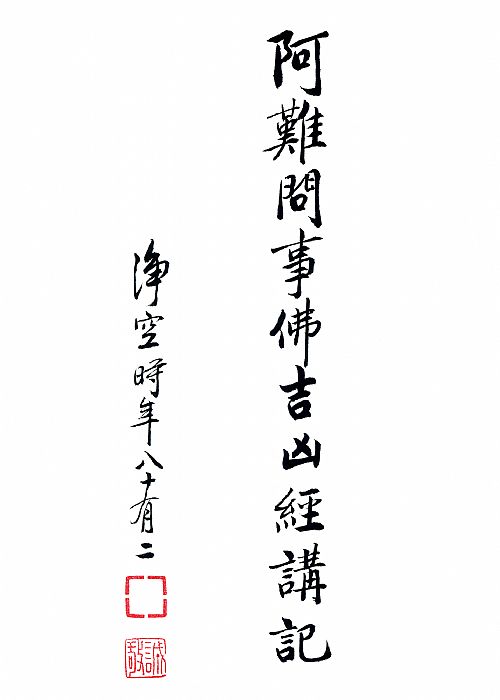 阿難問事佛吉凶經講記
淨空時年八十有二
誠敬